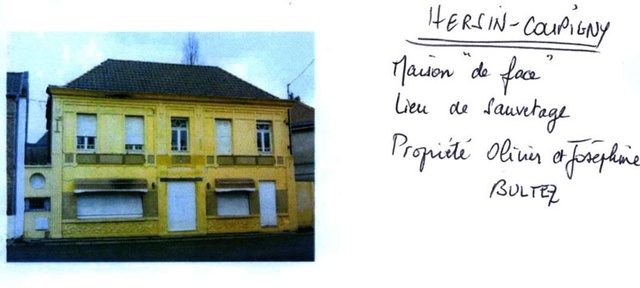 HERSIN-COUPIGNY
Maison "de face"
Lieu de Sauvetage
Propriété Olivier et Joséphine
BULTEZ